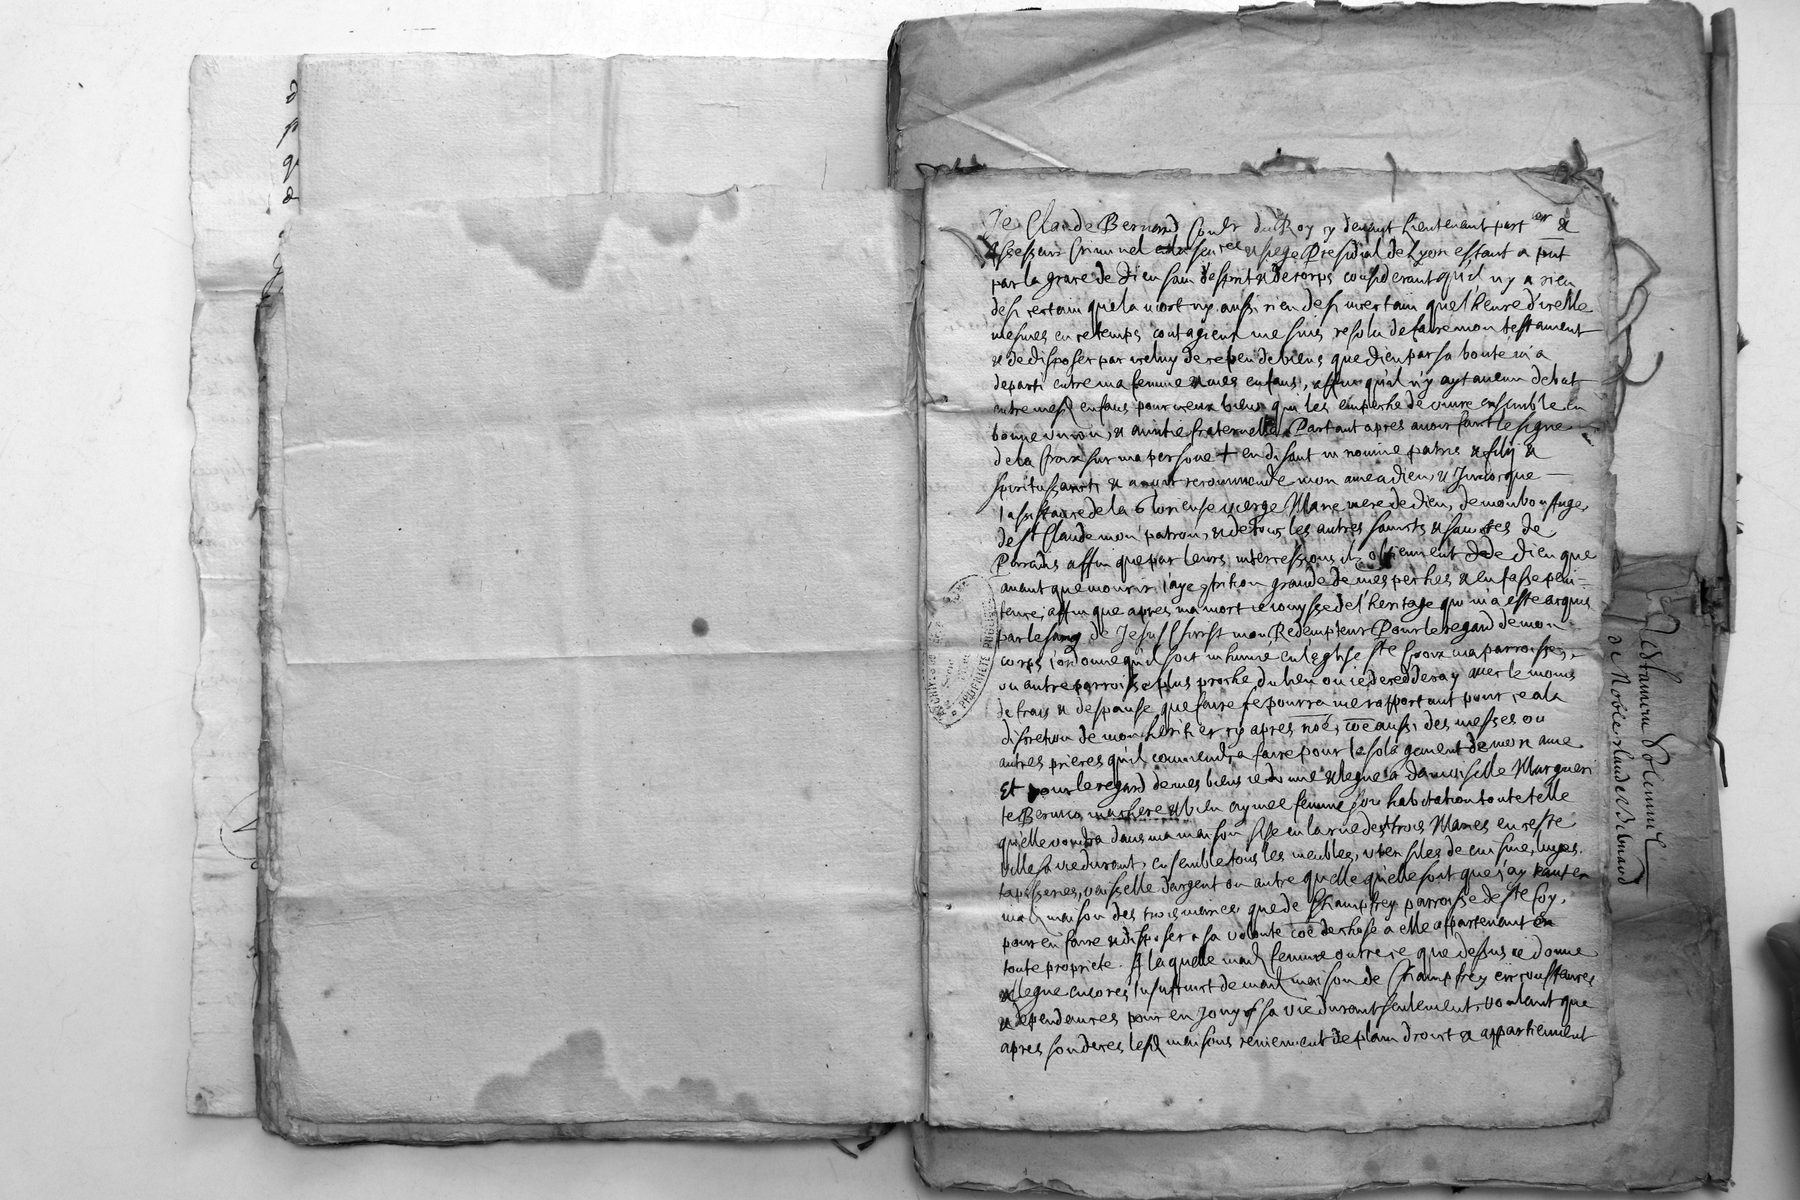 Je Claude Bernard Conlr du Roy cy devant Lieutenant part.er &
Assesseur Criminel siege Presidial de Lyon estant a
par la grace de Dieu sain desprit & de corps considerant quil ny a rien
de si certain que la mort ny aussi rien de si incertain que l'heure d'icelle
mesmes en ce temps contagieux me suis resolu de faire mon testament
& de disposer par iceluy de ce peu de biens que Dieu par sa bonté m'a
departi entre ma femme & mes enfans, affin quil n'y ayt aucun debat
entre mesd enfans pour iceux biens qui les empesche de vivre ensemble en
bonne union, & amitié fraternelle Partant apres avoir faict le signe
de la Croix sur ma persone + en disant in nomine patris & filij &
spiritus sancti & avoir recommende mon ame a dieu, & Invocque
l'assistance de la Glorieuse vierge Marie mere de Dieu, de mon bon Ange,
de st Claude mon patron, & de tous les autres saincts & sainctes de
Paradis affin que par leurs intercessions ilz obtiennent de Dieu que
avant que mourir i'aye grande de mes peches & en fasse peni-
tence, affin que apres ma mort ie iouysse de l'heritage qui m'a esté acquis
par le sang de Jesus Christ mon Redempteur Pour le regard de mon
corps i'ordonne quil soit inhumé en leglise ste Croix ma parroisse,
ou autre parroisse plus proche du lieu ou ie decedderay avec le moins
de frais & despanse que faire se pourra me rapportant pour ce a la
discretion de mon heritier cy apres noé, coe aussi des messes ou
autres prieres quil conviendra faire pour le solagement de mon ame
Et pour le regard de mes biens ie donne & legue a damoiselle Margueri
te ma chere & bien aymee femme son habitation toute telle
qu'elle voudra dans ma maison sise en la rue des trois Maries en ceste
ville sa vie durant, ensemble tous les meubles, utensiles de cuisine, linges,
tapisseries, vaisselle d'argent ou autre quelle quelle soit que j'ay tant en
mad maison des trois maries que de Champfrey parroisse de ste Foy,
pour en faire & disposer a sa volonté coe de chose a elle appartenant en
toute proprieté. A laquelle mad femme outre ce que dessus ie donne
& legue encores l'usufruict de mad maison de Champfrey circonstances
& dependances pour en jouyr sa vie durant seulement, voulant que
apres son deces lesd maisons reviennent de plain droict & appartiennent
Testament Solennel
de Noble Claude Bernard
PROPRIETE PUBLIQUE